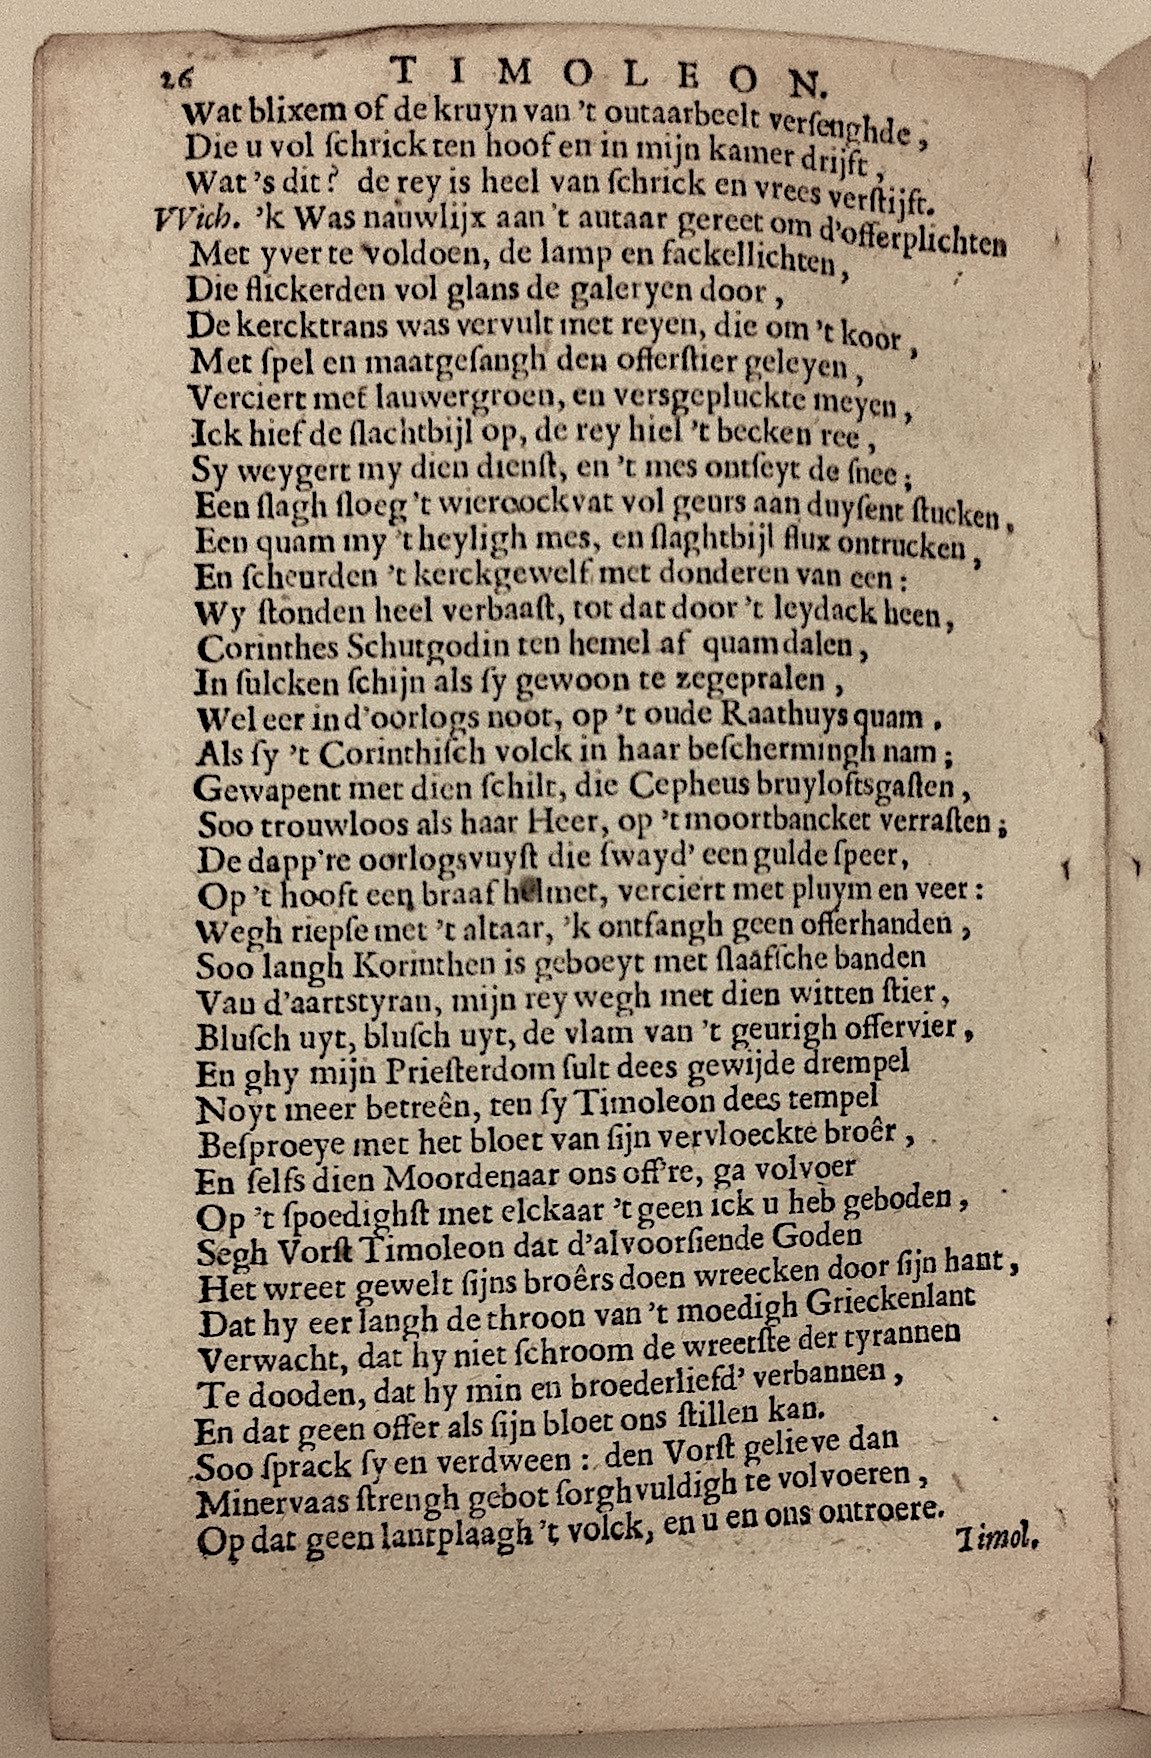 26 TIMOLEON.
Wat blixem of de kruyn van 't outaarbeelt verſenghde,
Die u vol ſchrick ten hoof en in mijn kamer drijft,
Wat 's dit? de rey is heel van ſchrick en vrees verſtijft.
VVich. 'k Was nauwlijx aan 't autaar gereet om d'offerplichten
Met yver te voldoen, de lamp en fackellichten,
Die flickerden vol glans de galeryen door,
De kercktrans was vervult met reyen, die om 't koor,
Met ſpel en maatgeſangh den offerſtier geleyen,
Verciert met lauwergroen, en versgepluckte meyen,
Ick hief de ſlachtbijl op, de rey hiel 't becken ree,
Sy weygert my dien dienſt, en 't mes ontſeyt de ſnee;
Een ſlagh ſloeg 't wieroockvat vol geurs aan duyſent ſtucken,
Een quam my 't heyligh mes, en ſlaghtbijl flux ontrucken,
En ſcheurden 't kerckgewelf met donderen van een:
Wy ſtonden heel verbaaſt, tot dat door 't leydack heen,
Corinthes Schutgodin ten hemel af quam dalen,
In ſulcken ſchijn als ſy gewoon te zegepralen,
Wel eer in d'oorlogs noot, op 't oude Raathuys quam.
Als ſy 't Corinthiſch volck in haar beſchermingh nam;
Gewapent met dien ſchilt, die Cepheus bruyloftsgaſten,
Soo trouwloos als haar Heer, op 't moortbancket verraſten;
De dapp're oorlogsvuyſt die ſwayd' een gulde ſpeer,
Op 't hooft een braaf helmet, verciert met pluym en veer:
Wegh riepſe met 't altaar, 'k ontfangh geen offerhanden,
Soo langh Korinthen is geboeyt met ſlaafſche banden
Van d'aartstyran, mijn rey wegh met dien witten ſtier,
Bluſch uyt, bluſch uyt, de vlam van 't geurigh offervier,
En ghy mijn Prieſterdom ſult dees gewijde drempel
Noyt meer betreên, ten ſy Timoleon dees tempel
Beſproeye met het bloet van ſijn vervloeckte broêr,
En ſelfs dien Moordenaar ons off're, ga volvoer
Op 't ſpoedighſt met elckaar 't geen ick u heb geboden,
Segh Vorſt Timoleon dat d'alvoorſiende Goden
Het wreet gewelt ſijns broêrs doen wreecken door ſijn hant,
Dat hy eer langh de throon van 't moedigh Grieckenlant
Verwacht, dat hy niet ſchroom de wreetſte der tyrannen
Te dooden, dat hy min en broederliefd' verbannen,
En dat geen offer als ſijn bloet ons ſtillen kan.
Soo ſprack ſy en verdween: den Vorſt gelieve dan
Minervaas ſtrengh gebot ſorghvuldigh te volvoeren,
Op dat geen lantplaagh 't volck, en u en ons ontroere.
Timol.